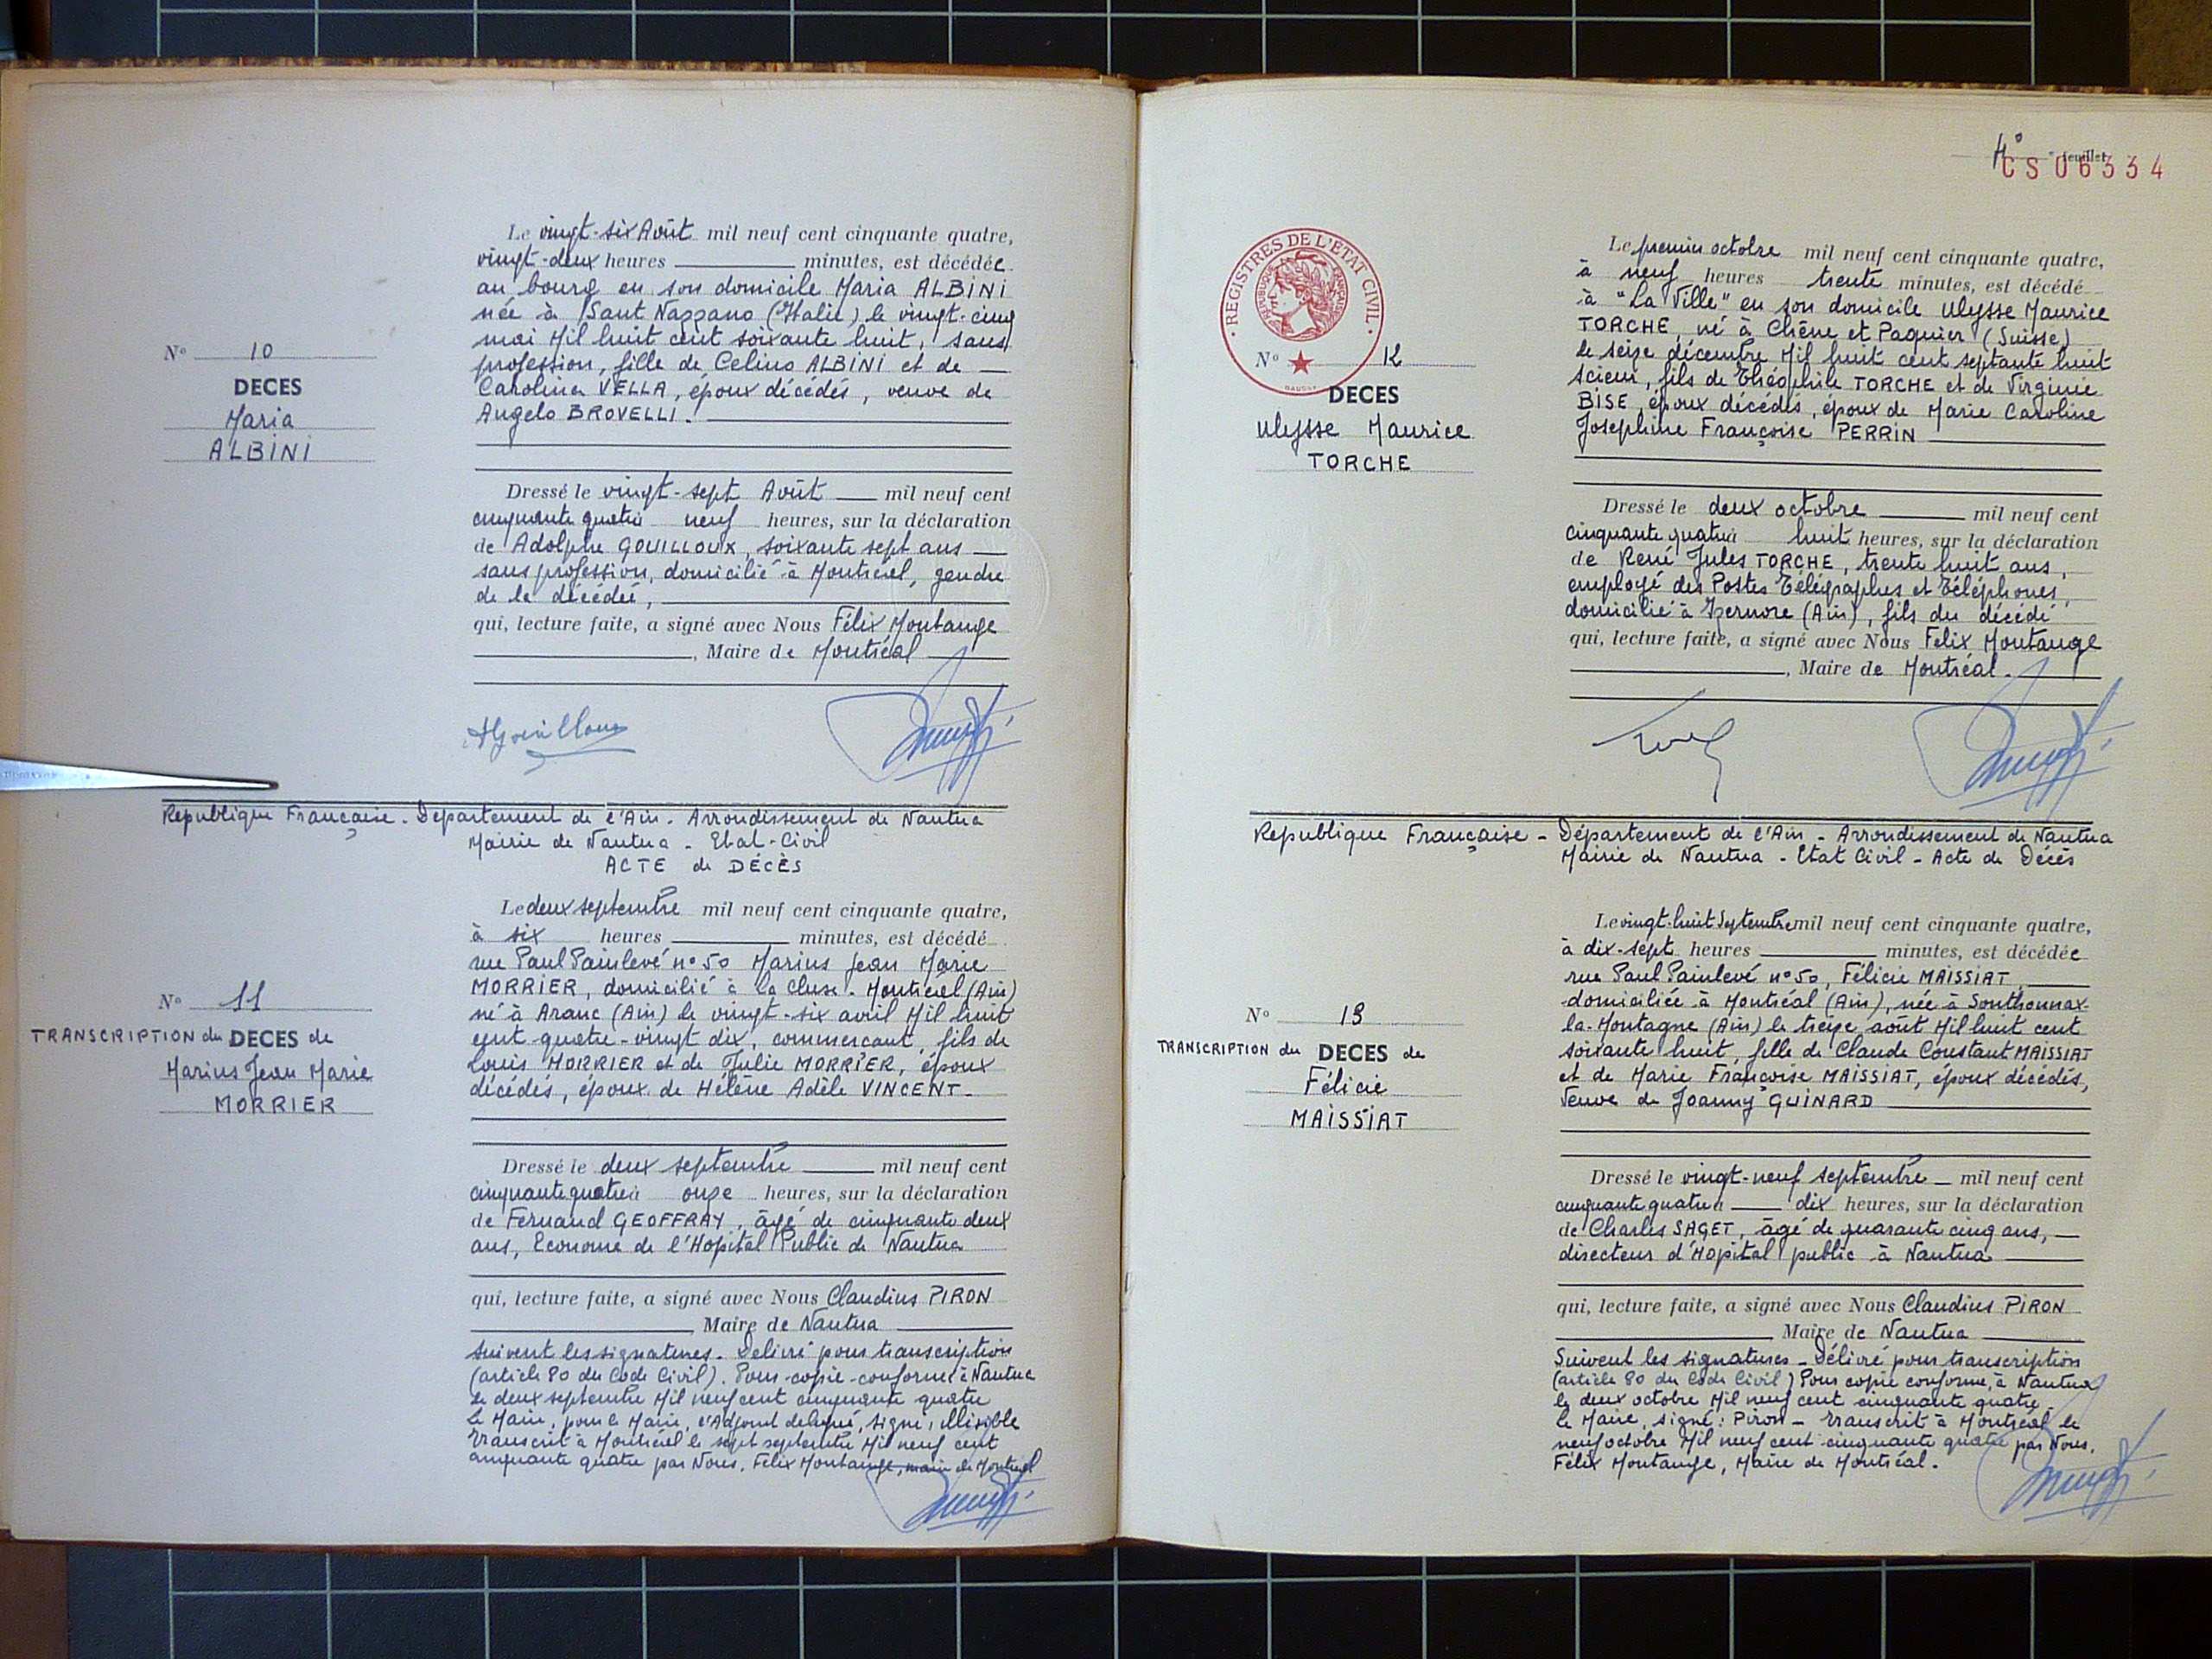 Le vingt-six Août mil neuf cent cinquante quatre,
vingt-deux heures minutes, est décédée
au bourg en son domicile Maria ALBINI
née à Sant Nazzano (Italie) le vingt-cinq
mai Mil huit cent soixante huit, sans
profession, fille de Celino ALBINI et de
Carolina VELLA, époux décédés, veuve de
Angelo BROVELLI.
N° 10
DECES
Maria
ALBINI
Dressé le vingt-sept Août mil neuf cent
cinquante quatre à neuf heures, sur la déclaration
de Adolphe GOUILLOUX, soixante sept ans
sans profession, domicilié à Montréal, gendre
de la décédée,
qui, lecture faite, a signé avec Nous Félix Montange
, Maire de Montréal
République Française - Département de l'Ain - Arrondissement de Nantua
Mairie de Nantua - Etat-Civil
ACTE de DÉCÈS
Le deux septembre mil neuf cent cinquante quatre,
à six heures minutes, est décédé
rue Paul Painlevé n° 50 Marius Jean Marie
MORRIER, domicilié à La Cluse - Montréal (Ain)
né à Aranc (Ain) le vingt-six avril Mil huit
cent quatre-vingt dix, commercant, fils de
Louis MORRIER et de Julie MORRIER, époux
décédés, époux de Hélène Adèle VINCENT-
N° 11
TRANSCRIPTION du DECES de
Marius Jean Marie
MORRIER
Dressé le deux septembre mil neuf cent
cinquante quatre à onze heures, sur la déclaration
de Fernand GEOFFRAY, âgé de cinquante deux
ans, Econome de l'Hopital Public de Nantua
qui, lecture faite, a signé avec Nous Claudius PIRON
, Maire de Nantua
Suivent les signatures - Délivré pour transcription
(article 80 du Code Civil). Pour copie conforme à Nantua
le deux septembre Mil neuf cent cinquante quatre
le Maire, pour le Maire, l'Adjoint délégué, signé, illisible
transcrit à Montréal le sept septembre Mil neuf cent
cinquante quatre par Nous, Félix Montange, maire de Montréal
4° feuillet
CS 06334
REGISTRES DE L'ÉTAT CIVIL
Le premier octobre mil neuf cent cinquante quatre,
à neuf heures trente minutes, est décédé
à "La Ville" en son domicile Ulysse Maurice
TORCHE, né à Chêne et Paquier (Suisse)
le seize décembre Mil huit cent septante huit
scieur, fils de Théophile TORCHE et de Virginie
BISE, époux décédés, époux de Marie Caroline
Josephine Françoise PERRIN
N° 12
DECES
Ulysse Maurice
TORCHE
Dressé le deux octobre mil neuf cent
cinquante quatre à huit heures, sur la déclaration
de René Jules TORCHE, trente huit ans,
employé des Postes Télégraphes et Téléphones,
domicilié à Izernore (Ain), fils du décédé
qui, lecture faite, a signé avec Nous Félix Montange
, Maire de Montréal.
République Française - Département de l'Ain - Arrondissement de Nantua
Mairie de Nantua - Etat Civil - Acte de Décès
Le vingt-huit Septembre mil neuf cent cinquante quatre,
à dix-sept heures minutes, est décédée
rue Paul Painlevé n° 50, Félicie MAISSIAT,
domiciliée à Montréal (Ain), née à Sonthonnax-
la-Montagne (Ain) le treize août Mil huit cent
soixante huit, fille de Claude Constant MAISSIAT
et de Marie Françoise MAISSIAT, époux décédés,
Veuve de Joanny GUINARD
N° 13
TRANSCRIPTION du DECES de
Félicie
MAISSIAT
Dressé le vingt-neuf septembre mil neuf cent
cinquante quatre à dix heures, sur la déclaration
de Charles SAGET, âgé de quarante cinq ans,
directeur d'Hopital public à Nantua
qui, lecture faite, a signé avec Nous Claudius PIRON
, Maire de Nantua
Suivent les signatures - Délivré pour transcription
(article 80 du Code Civil) Pour copie conforme, à Nantua
le deux octobre Mil neuf cent cinquante quatre
le Maire, signé : Piron - transcrit à Montréal le
neuf octobre Mil neuf cent cinquante quatre par Nous,
Félix Montange, Maire de Montréal.